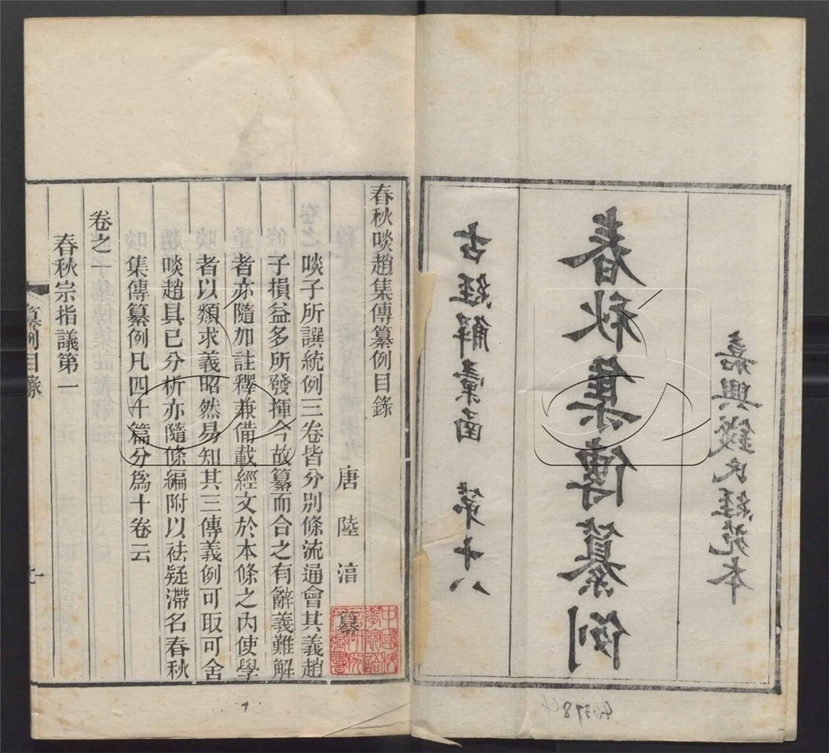 古經解彙函 第十八
春秋集傳纂例
嘉興錢氏經苑本
春秋啖趙集傳纂例目錄
唐 陸 湻 纂
啖子所譔統例三卷皆分別條流通會其義趙
子損益多所發揮今故纂而合之有辭義難解
者亦隨加註釋兼備載經文於本條之內使學
者以類求義昭然易知其三傳義例可取可舍
啖趙具已分析亦隨條編附以袪疑滯名春秋
集傳纂例凡四十篇分爲十卷云
卷之一
春秋宗指議第一
纂例目錄